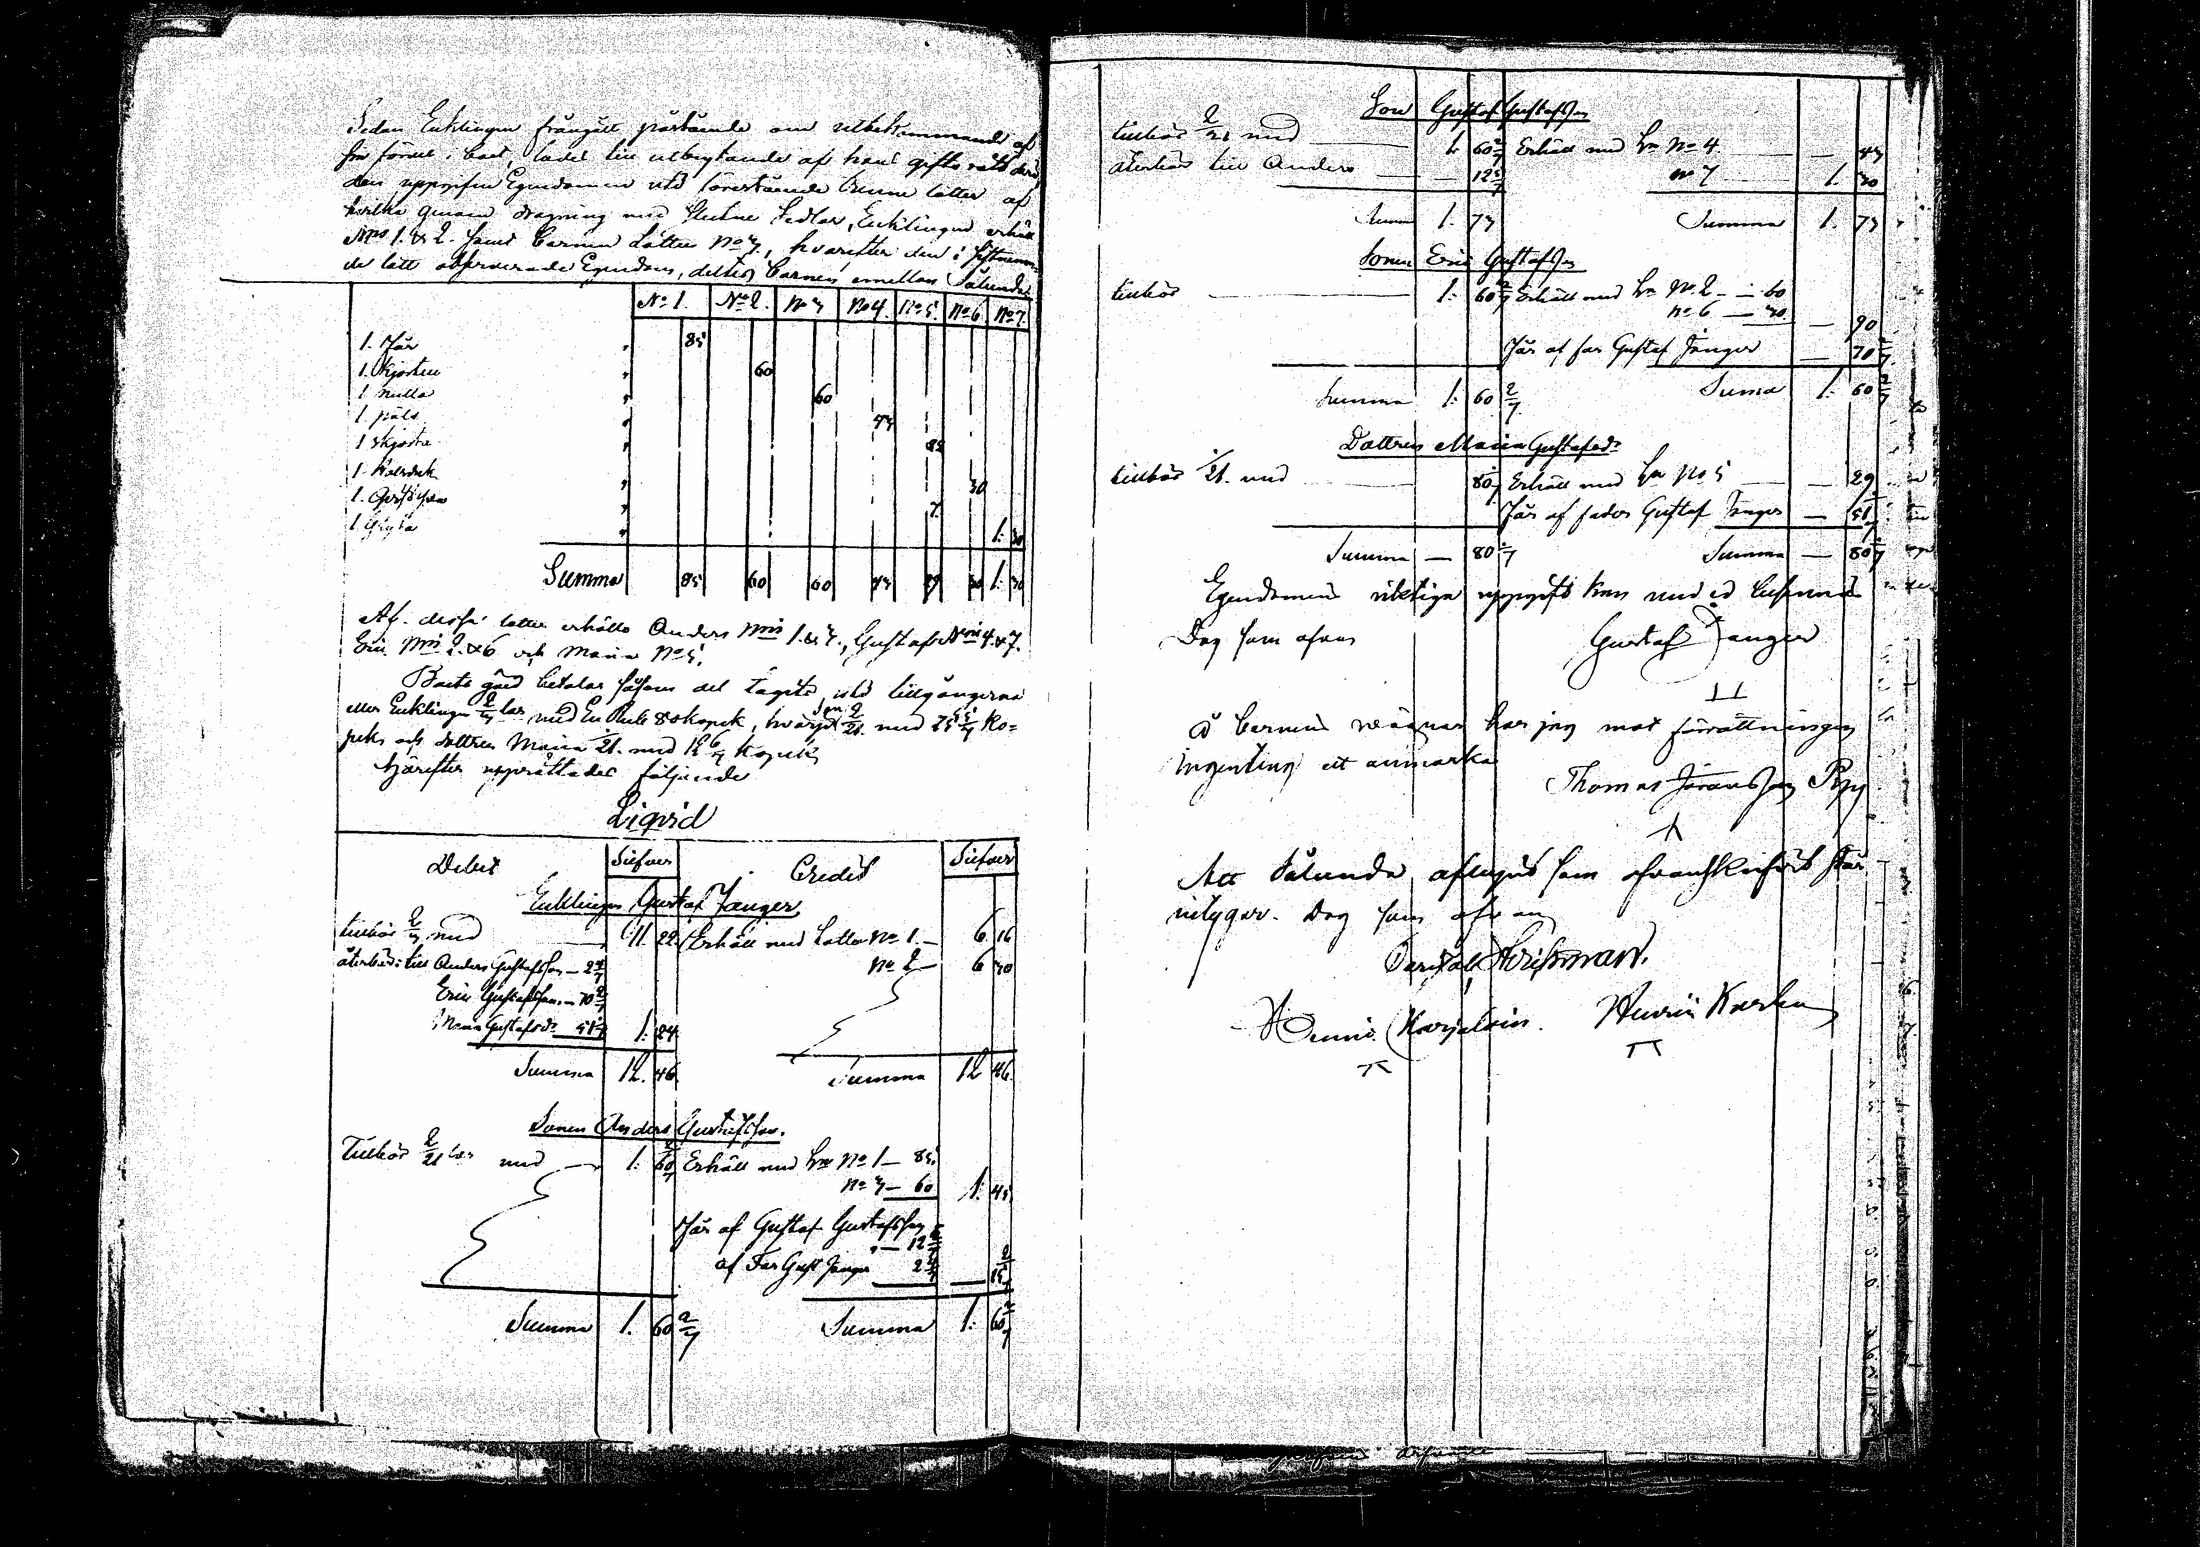 Sedan Enklingen frångått påstående om utbekommande af
sin fördel i boet, lades till utbrytande af hans giftorätt derå
den uppgifna Egendomen uti förestående Trenne lotter af
hvilka genom dragning med slutne Sedlar, Enklingen erhöll
Nris 1. & 2. samt Barnen Lotten No 3, hvarefter den i sistnämn-
de lott observerade Egendom, deltes Barnen emellan Sålunda
No 1. No 2. No 3 No 4. No 5. No 6 No 7.
1. 85
1. Kjortell 60
1 60
1 päls 43
1 skjorta 22
1 Halsduk 30
1. 7.
1. Gryta 1. 30
Summa 85 60 60 43 29 30 1. 30
Af dessa lotter erhöllo Anders Nris 1. & 3., Gustaf Nris 4. & 7.
Eric Nris 2. & 6 och Maria No 5.
Boets gäld betalas såsom det tagits utur tillgångarna
eller Enklingen 2/3 lar med En Rub 80 kopek, hvarje son 2/21. med 25 5/7 ko-
pek och dottren Maria 1/21. med 12 6/7 kopek
Härefter upprättades följande
Liqvid
Debet Silfver Credit Silfver
Enklingen Gustaf Janger
tillkör 2/3 med 11. 22. Erhåll med Lotten No 1. — 6 16
återbär till Anders Gustafsson — 2 4/7 No 2 — 6 30
Eric Gustafsson — 70 2/7
Maria Gustafsdr 51 1/7 1. 24.
Summa 12. 46. Summa 12 46.
Sonen Anders Gustafsson.
Tillkör 2/21 lar med — 1. 60 2/7 Erhåll med Ln No 1 — 85.
No 3 — 60 1. 45
Får af Gustaf Gustafsson
— 12 5/7
af Far Gust Janger 2 4/7 — 15 2/7
Summa 1. 60 2/7 Summa 1. 60 2/7
Son Gustaf Gustafsson
tillkör 2/21 med 1. 60 2/7 Erhåll med Ln No 4. — 43
återbär till Anders — 12 5/7 No 7 1. 30
Summa 1. 73 Summa 1. 73
Sonen Eric Gustafsson
tillkör — 1. 60 2/7 Erhåll med Ln No 2 — 60
No 6 — 30 — 90
Får af far Gustaf Janger — 70 2/7
Summa 1. 60 2/7 Suma 1. 60 2/7
Dottren Maria Gustafsdr
tillkör 1/21. med 80 1/7 Erhåll med Ln No 5 — 29
Får af fader Gustaf Janger — 51 1/7
Summa — 80 1/7 Summa — 80 1/7
Egendomens riktiga uppgift kan med ed besannas
Dag som ofvan
Gustaf Janger
å Barnens vägnar har jag mot förrättningen
ingenting att anmärka
Thomas Göransson
Att Sålunda aflupit som ofvanskrifvit står
intygar. Dag som ofvan
Henric Karjalain. Henric